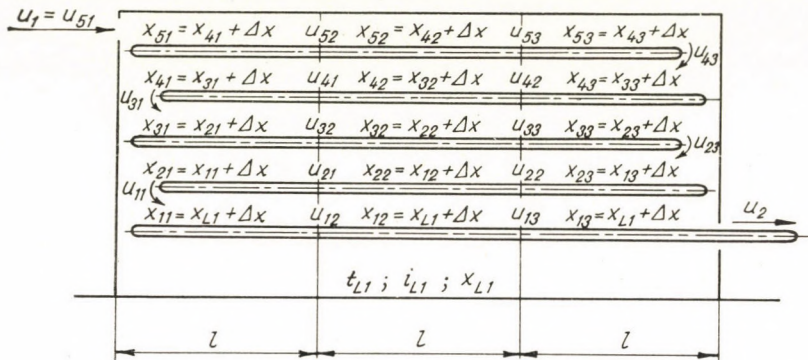 u₁ = u₅₁
x₅₁ = x₄₁ + Δx u₅₂ x₅₂ = x₄₂ + Δx u₅₃ x₅₃ = x₄₃ + Δx
u₄₃
x₄₁ = x₃₁ + Δx u₄₁ x₄₂ = x₃₂ + Δx u₄₂ x₄₃ = x₃₃ + Δx
u₃₁
x₃₁ = x₂₁ + Δx u₃₂ x₃₂ = x₂₂ + Δx u₃₃ x₃₃ = x₂₃ + Δx
u₂₃
x₂₁ = x₁₁ + Δx u₂₁ x₂₂ = x₁₂ + Δx u₂₂ x₂₃ = x₁₃ + Δx
u₁₁
x₁₁ = x_L1 + Δx u₁₂ x₁₂ = x_L1 + Δx u₁₃ x₁₃ = x_L1 + Δx
u₂
t_L1 ; i_L1 ; x_L1
l l l